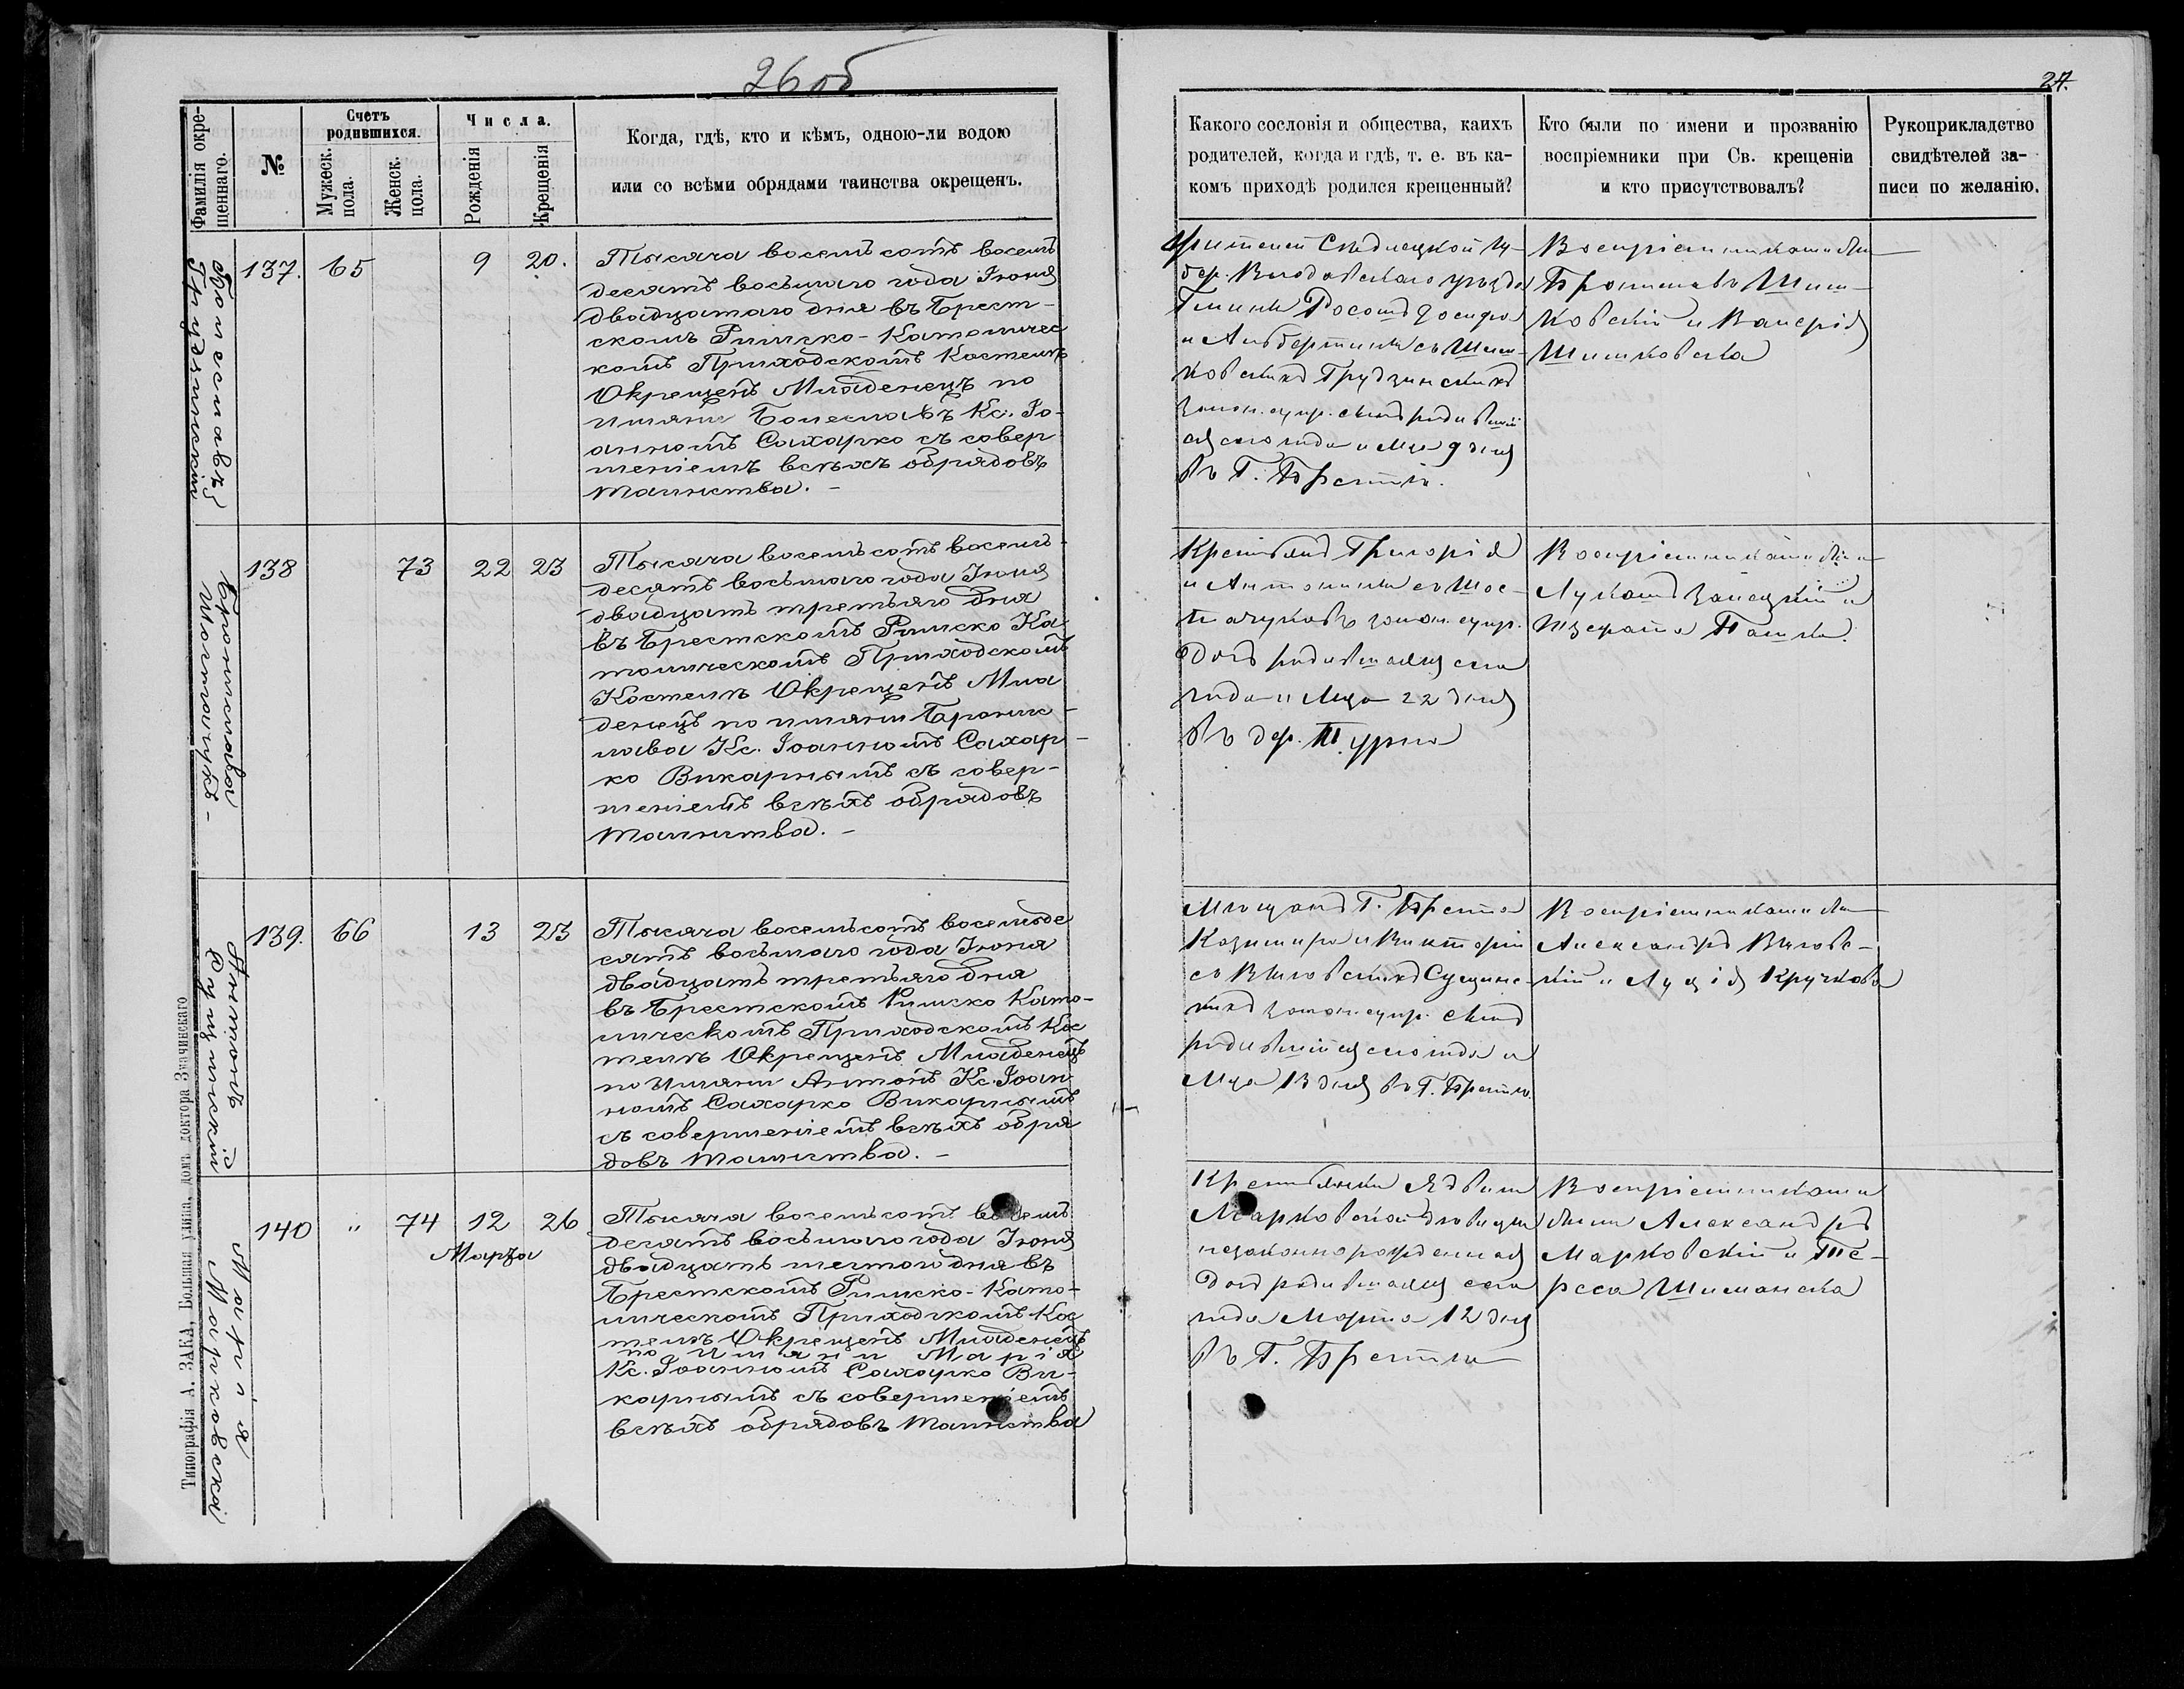 26 об
27.
Фамилія окре-
щеннаго.
№
Счетъ
родившихся.
Мужеск.
пола.
Женск.
пола.
Числа.
Рожденія
Крещенія
Когда, гдѣ, кто и кѣмъ, одною-ли водою
или со всѣми обрядами таинства окрещенъ.
Какого сословія и общества, каихъ
родителей, когда и гдѣ, т. е. въ ка-
комъ приходѣ родился крещенный?
Кто были по имени и прозванію
воспріемники при Св. крещеніи
и кто присутствовалъ?
Рукоприкладство
свидѣтелей за-
писи по желанію.
Болеславъ
Грудзинскій
137. 65 9 20.
Тысяча восемъ сотъ восемъ
десятъ восьмаго года Іюня
двадцатаго дня въ Брест-
скомъ Римско-Католичес
комъ Приходскомъ Костелѣ
Окрещенъ Младенецъ по
имяни Болеславъ Кс. Іо-
анномъ Сахарко съ совер
шеніемъ всѣхъ обрядовъ
Таинства. -
Жителей Сѣдлецкой Гу-
бер. Влодавскаго уѣзда
Гмины Росошъ Іосифа
и Альбертины съ Шиш-
ковскихъ Грудзинскихъ
закон. супр. сынъ родивший
ся сего года и Мца 9 дня
въ Г. Брестѣ.
Воспріемниками были
Брониславъ Шиш-
ковскій и Валерія
Шишковска
Бронислава
Шостачукъ -
138 73 22 23
Тысяча восемъ сотъ восемъ-
десятъ восьмаго года Іюня
двадцатъ третьяго дня
въ Брестскомъ Римско Ка
толическомъ Приходскомъ
Костелѣ Окрещенъ Мла
денецъ по имяни Бронис-
лава Кс. Іоанномъ Сахар-
ко Викарнымъ съ совер-
шеніемъ всѣхъ обрядовъ
Таинства. -
Крестьянъ Григорія
и Антонины съ Шос-
тачуковъ закон. супр.
дочь родившаяся сего
года и Мца 22 дня
въ дер. Турна
Воспріемниками были
Лукашъ Залецкій и
Пашка.
Антонъ
Сущинскій
139. 66 13 23
Тысяча восемъсотъ восемьде
сятъ восьмаго года Іюня
двадцатъ третьяго дня
въ Брестскомъ Римско Като-
лическомъ Приходскомъ Кос
телѣ Окрещенъ Младенецъ
по Имяни Антонъ Кс. Іоан
номъ Сахарко Викарнымъ
съ совершеніемъ всѣхъ обря
довъ Таинства. -
Мѣщанъ Г. Бреста
Казимира и Викторіи
съ Выговскихъ Сущинс-
кихъ закон. супр. сынъ
родившійся сего года и
Мца 13 дня въ Г. Брестѣ.
Воспріемниками были
Александръ Выговс-
кій и Луція Кручкова
Марія
Марковская
140 " 74 12 26
Марта
Тысяча восемъсотъ восемъ
десятъ восьмаго года Іюня
двадцатъ шестого дня въ
Брестскомъ Римско-Като-
лическомъ Приходскомъ Кос
телѣ Окрещенъ Младенецъ
по Имяни Марія
Кс. Іоанномъ Сахарко Ви-
карнымъ съ совершеніемъ
всѣхъ обрядовъ Таинства
Крестьянки Ядвиги
Марковской дѣвицы
незаконнорожденная
дочь родившаяся сего
года Марта 12 дня
въ Г. Брестѣ
Воспріемниками
были Александръ
Марковскій и Те-
реса Шиманска
Типографія А. ЗАКА, Вольная улица, домъ доктора Значинскаго